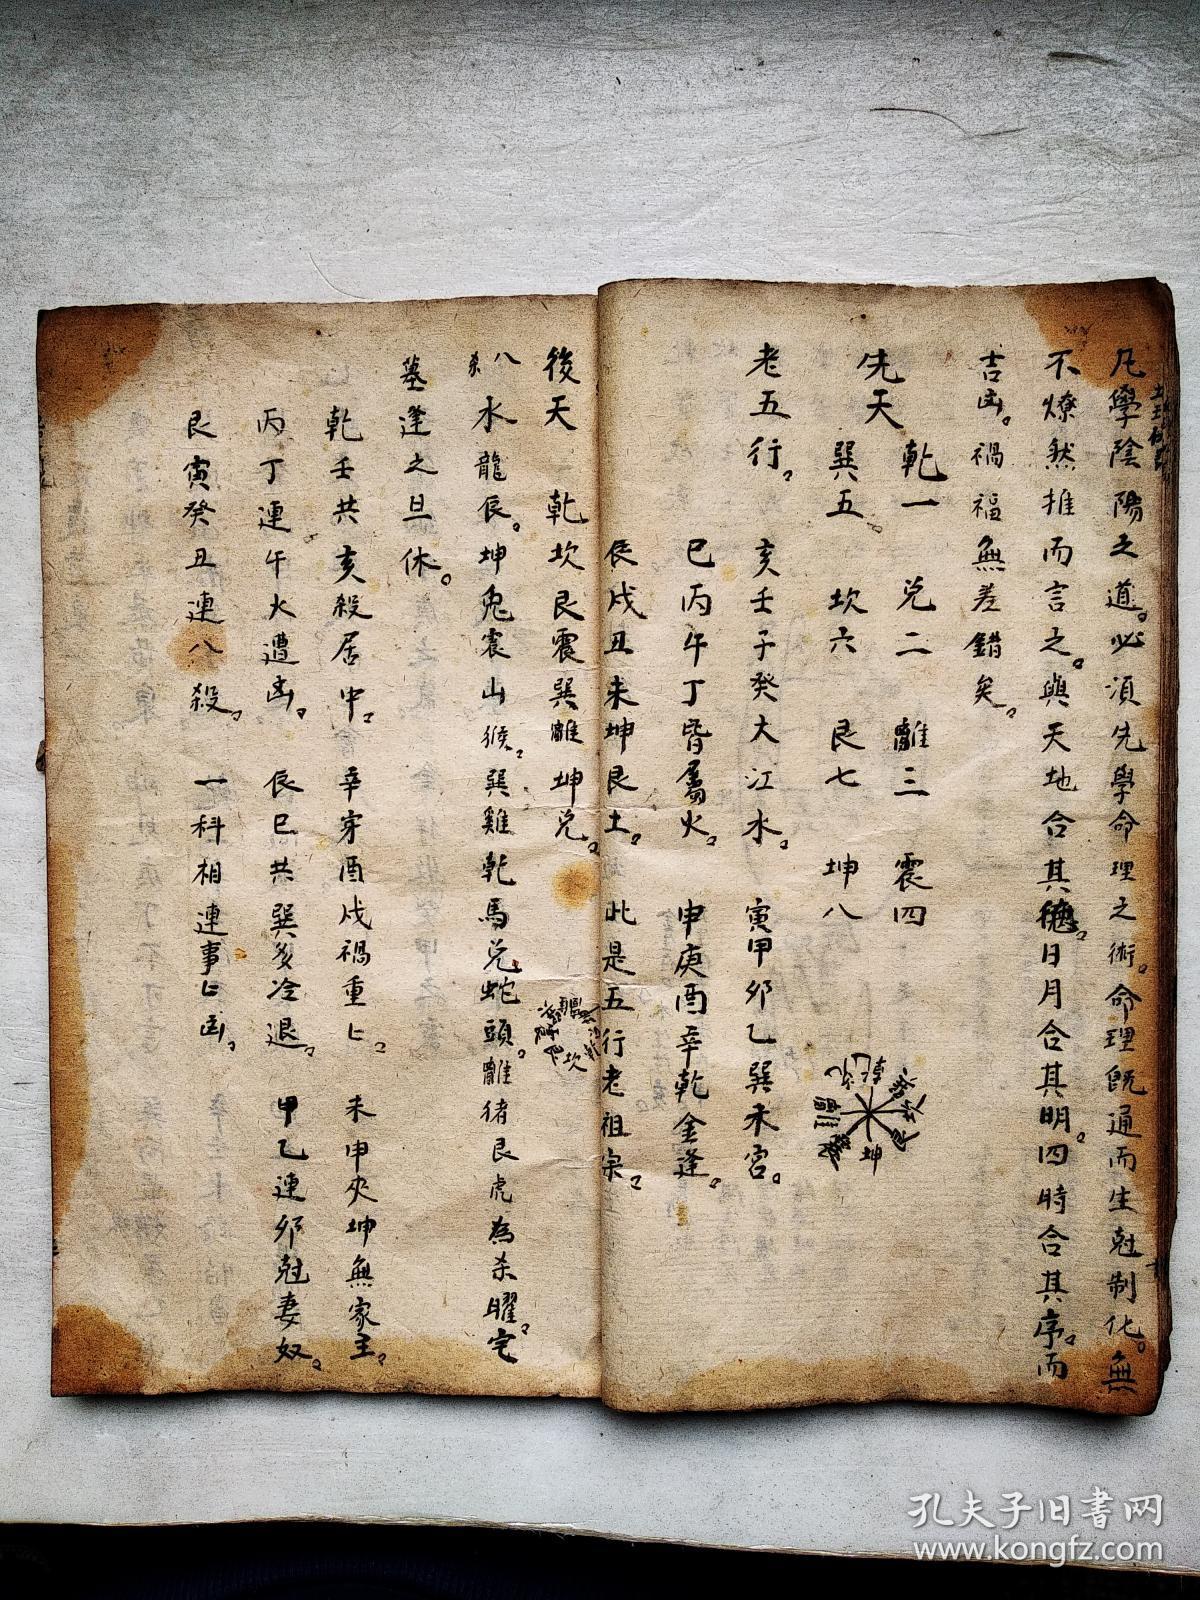 凡學陰陽之道。必須先學命理之術。命理既通而生尅制化。無
不燎然推而言之。與天地合其德。日月合其明。四時合其序。而
吉凶。禍福無差錯矣。
先天 乾一 兌二 離三 震四
巽五 坎六 艮七 坤八
乾 坤 離
老五行。 亥壬子癸大江水。 寅甲卯乙巽木宮。
巳丙午丁皆屬火。 申庚酉辛乾金逢。
辰戌丑未坤艮土。 此是五行老祖宗。
後天 乾坎艮震巽離坤兌。
坎
八杀 水龍辰。坤兔震山猴。巽雞乾馬兌蛇頭。離猪艮虎為杀曜。宅
墓逢之旦休。
乾壬共亥殺居中。 辛穿酉戌禍重〻。 未申夾坤無家主。
丙丁連午火遭凶。 辰巳共巽多冷退。 甲乙連卯尅妻奴。
艮寅癸丑連八殺。 一科相連事〻凶。
孔夫子旧书网
www.kongfz.com